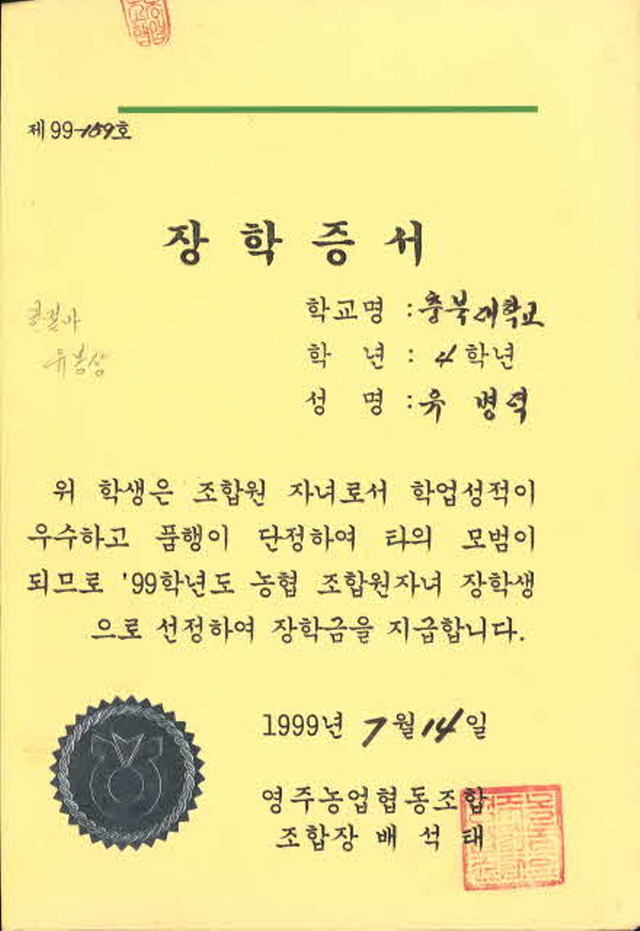 제 99-159호
장 학 증 서
학교명 : 충북대학교
학 년 : 4학년
성 명 : 유 병 덕
유봉상
위 학생은 조합원 자녀로서 학업성적이
우수하고 품행이 단정하여 타의 모범이
되므로 '99학년도 농협 조합원자녀 장학생
으로 선정하여 장학금을 지급합니다.
1999년 7월 14일
영주농업협동조합
조합장 배 석 태